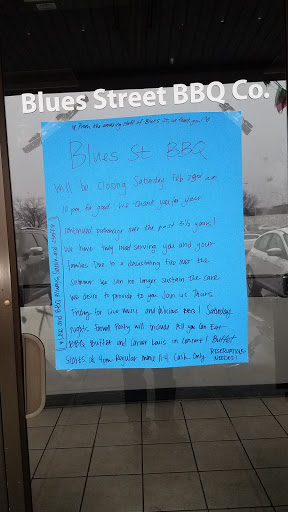 Blues Street BBQ Co.
From the amazing staff of Blues St. we thank you!
Blues St BBQ
Will be closing Saturday Feb 29th at
10 pm for good. We thank you for your
continued patronage over the past 5½ years!
We have truly loved serving you and your
families. Due to a devastating fire over the
Summer we can no longer sustain the care
we desire to provide to you. Join us Thurs
Friday for Live music and delicious BBQ! Saturday
nights Farewell Party will include All you Can Eat
BBQ Buffet and Carver Louis in concert! Buffet
Starts at 4pm Regular menu 11-4 Cash Only
RESERVATIONS
NEEDED!